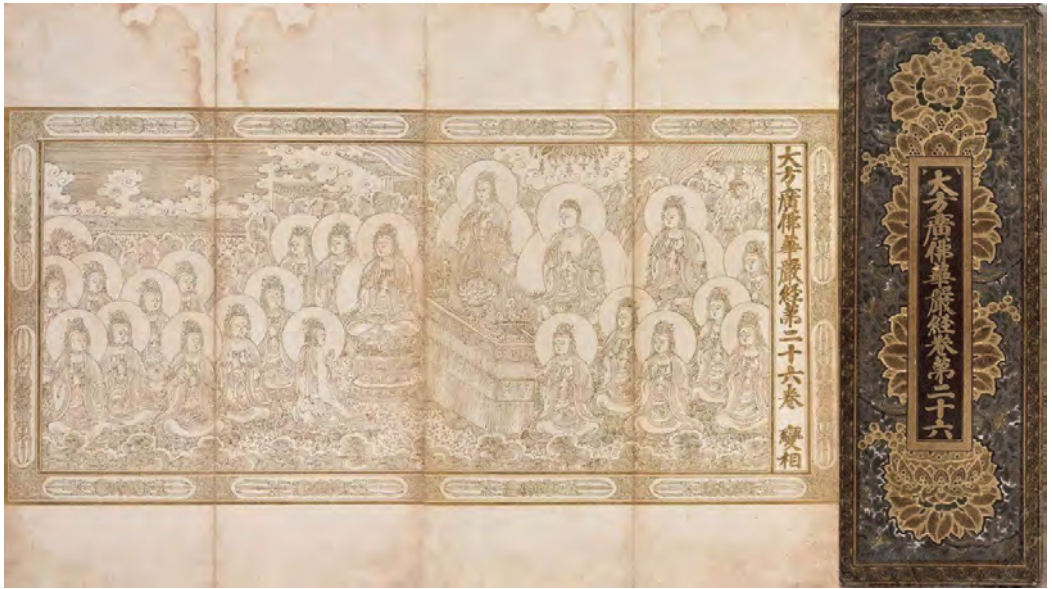 大方廣佛華嚴經第二十六卷 變相
大方廣佛華嚴經卷第二十六